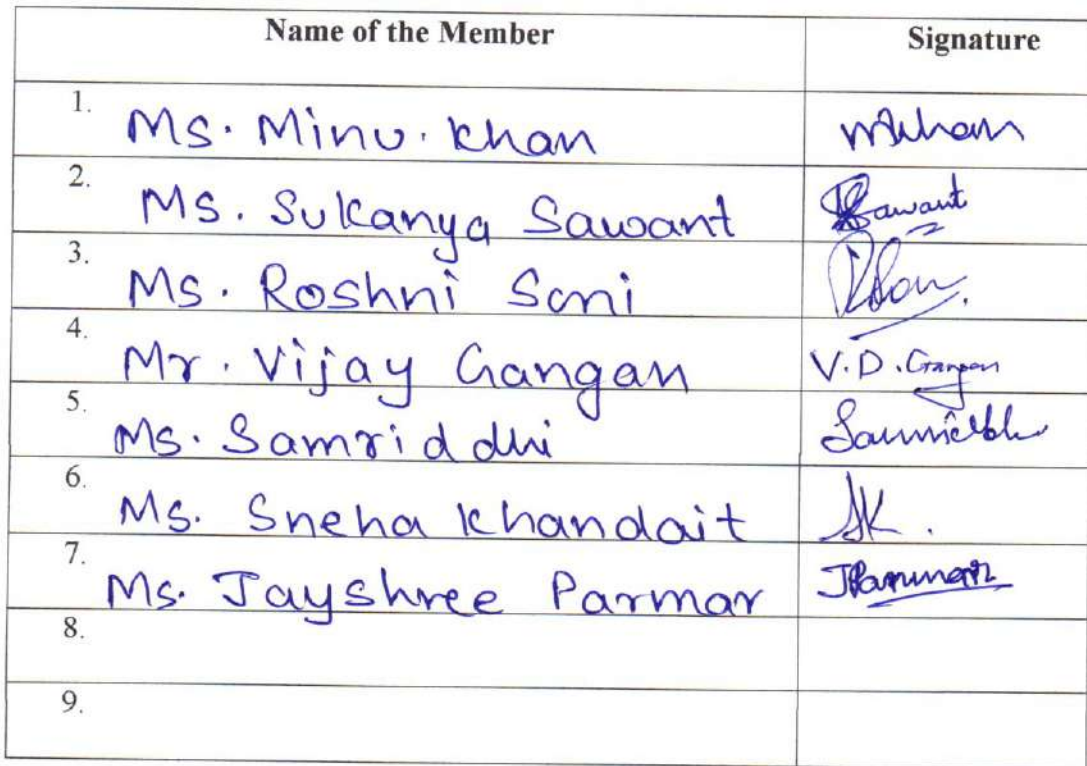 Name of the Member Signature
1. Ms. Minu. Khan
2. Ms. Sukanya Sawant Sawant
3. Ms. Roshni Soni
4. Mr. Vijay Gangan V.D. Gangan
5. Ms. Samriddhi
6. Ms. Sneha Khandait SK.
7. Ms. Jayshree Parmar JParmar
8.
9.